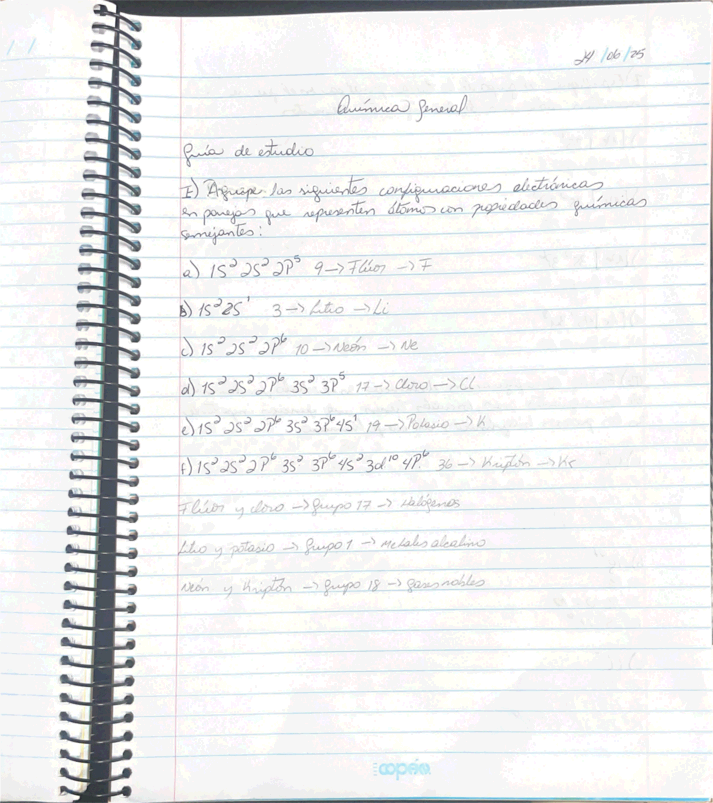 24/06/25
Química General
Guía de estudio
I) Agrupe las siguientes configuraciones electrónicas
en parejas que representen átomos con propiedades químicas
semejantes:
a) 1s² 2s² 2p⁵ 9 → Flúor → F
b) 1s² 2s¹ 3 → Litio → Li
c) 1s² 2s² 2p⁶ 10 → Neón → Ne
d) 1s² 2s² 2p⁶ 3s² 3p⁵ 17 → Cloro → Cl
e) 1s² 2s² 2p⁶ 3s² 3p⁶ 4s¹ 19 → Potasio → K
f) 1s² 2s² 2p⁶ 3s² 3p⁶ 4s² 3d¹⁰ 4p⁶. 36 → Kriptón → Kr
Flúor y cloro → Grupo 17 → Halógenos
Litio y potasio → Grupo 1 → Metales alcalino
Neón y Kriptón → Grupo 18 → gases nobles
copán